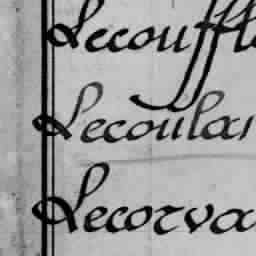 Lecouffle
Lecoulas
Lecorva